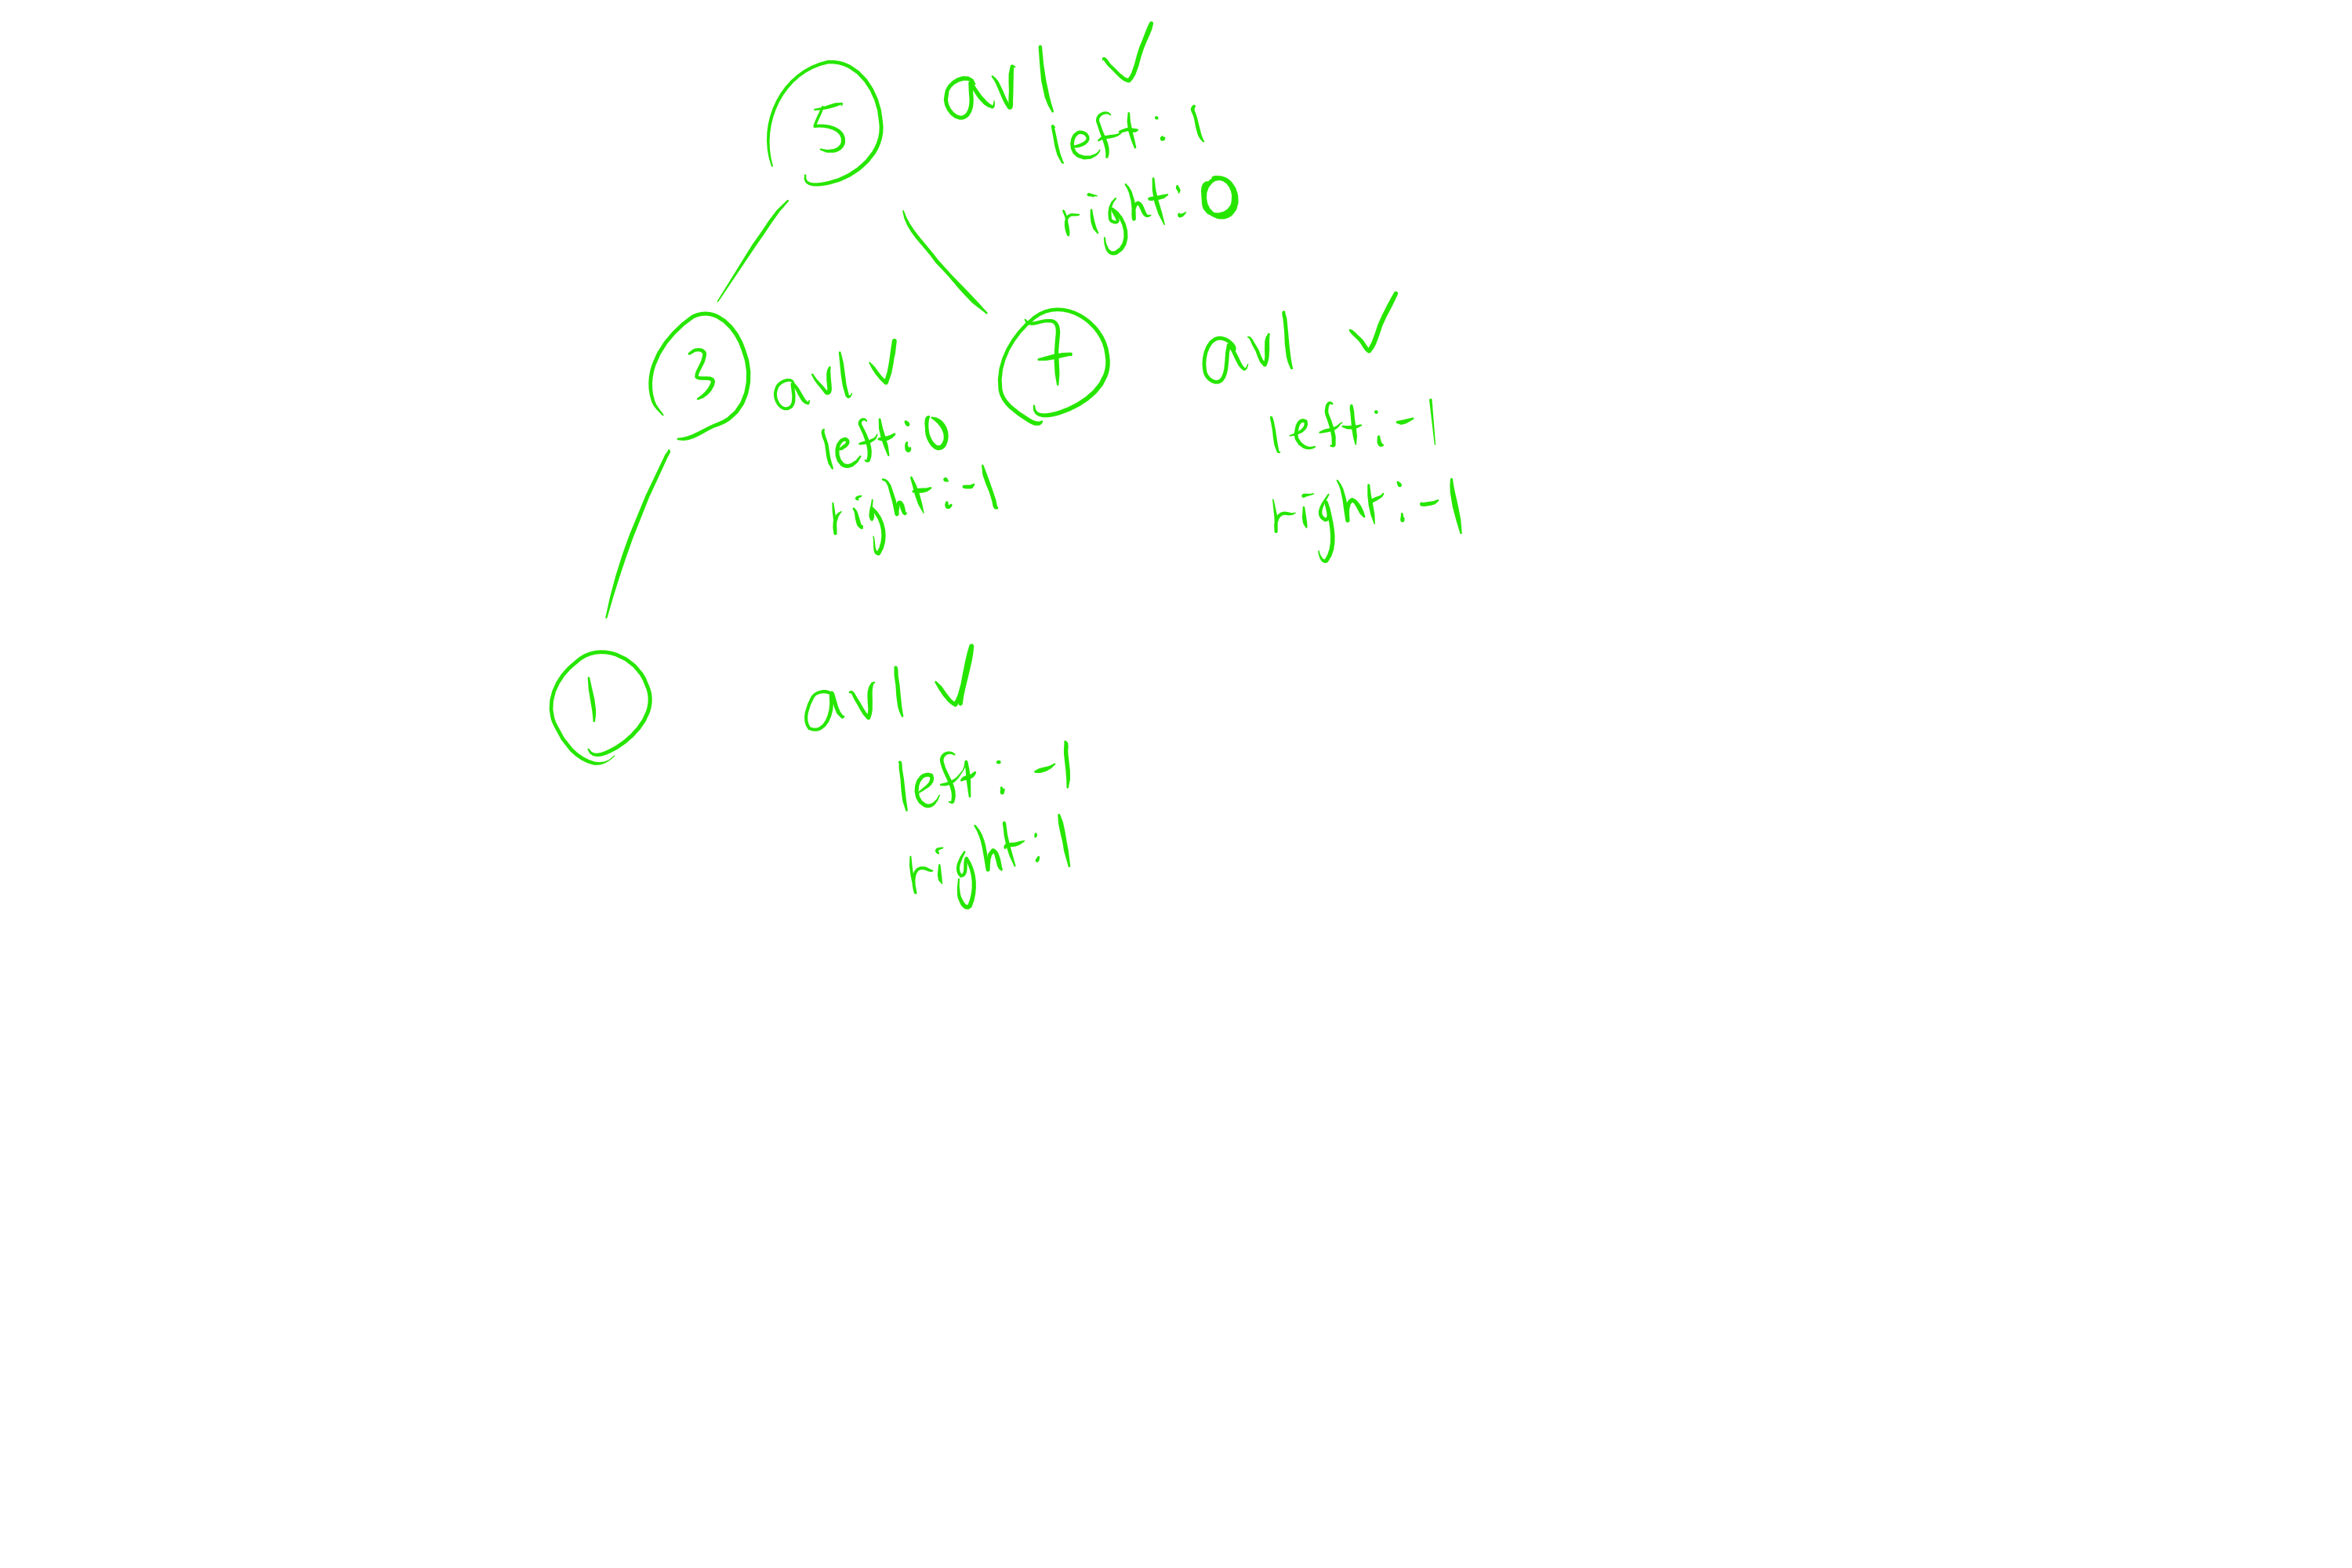 5
avl ✓
left: 1
right: 0
3
avl ✓
left: 0
right: -1
7
avl ✓
left: -1
right: -1
1
avl ✓
left: -1
right: 1